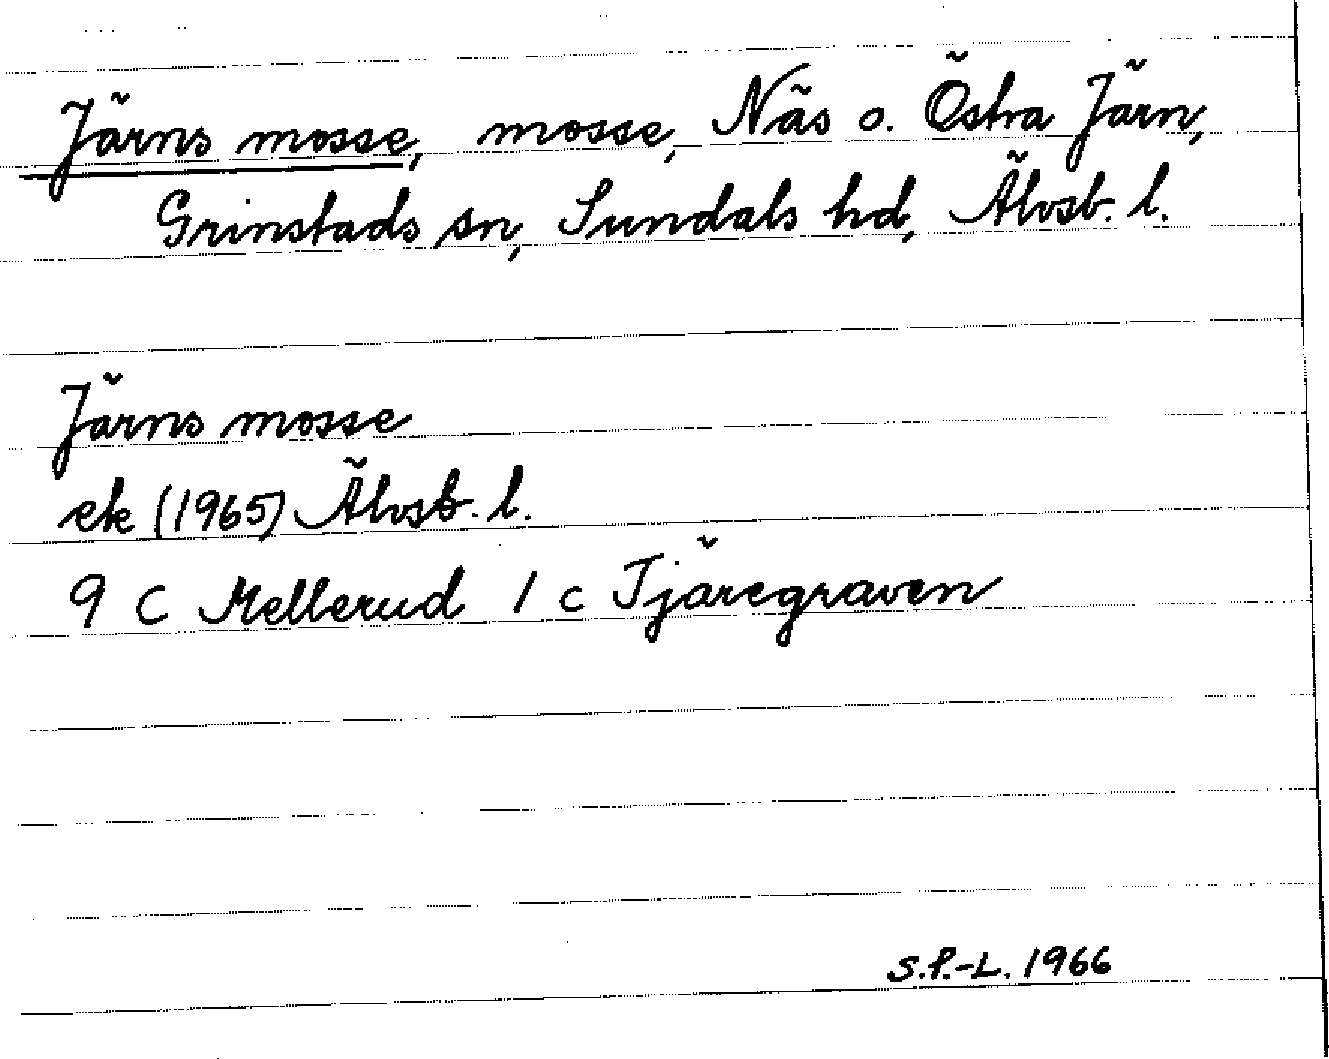 Järns mosse, mosse, Näs o. Östra Järn,
Grinstads sn, Sundals hd, Älvsb. l.
Järns mosse
ek (1965) Älvsb. l.
9 C Mellerud 1 c Tjäregraven
S.P.-L. 1966